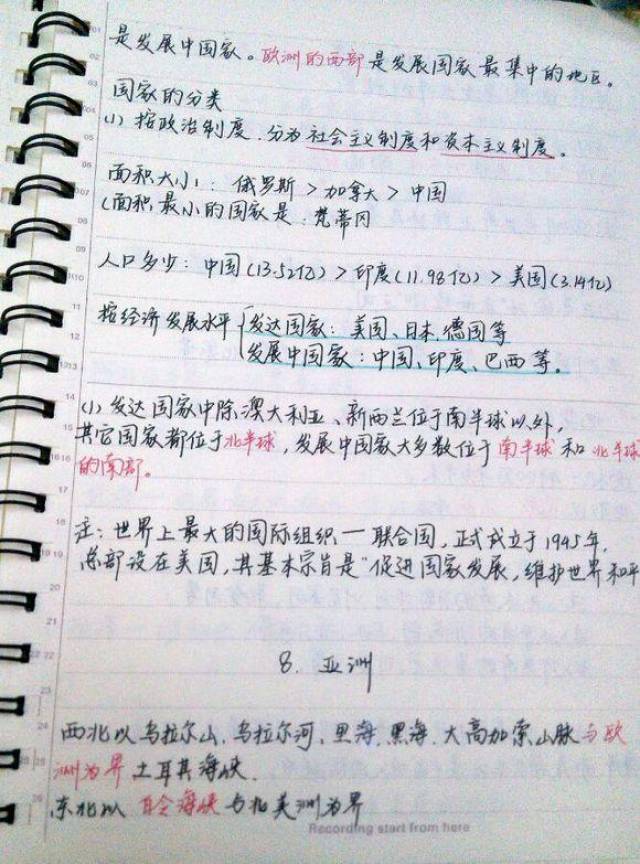 是发展中国家。欧洲的西部是发展国家最集中的地区。
国家的分类
(1) 按政治制度.分为社会主义制度和资本主义制度。
面积大小: 俄罗斯>加拿大>中国
(面积最小的国家是:梵蒂冈
人口多少: 中国(13.52亿)>印度(11.98亿)>美国(3.14亿)
按经济发展水平 发达国家: 美国、日本、德国等
发展中国家: 中国、印度、巴西等。
(1) 发达国家中除澳大利亚、新西兰位于南半球以外,
其它国家都位于北半球,发展中国家大多数位于南半球和北半球
的南部。
注: 世界上最大的国际组织一联合国,正式成立于1945年,
总部设在美国,其基本宗旨是“促进国家发展,维护世界和平
8. 亚洲
西北以乌拉尔山、乌拉尔河、里海、黑海、大高加索山脉与欧
洲为界 土耳其海峡.
东北以 白令海峡 与北美洲为界
Recording start from here